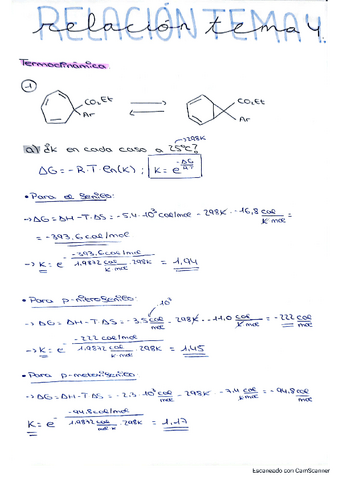 RELACIÓN TEMA 4.
relación tema 4.
Termodinámica
1
CO₂Et
Ar
CO₂Et
Ar
298K
a) ¿k en cada caso a 25ºC?
ΔG = -R·T ln(K) ; K = e^(-ΔG/RT)
• Para el fenilo:
→ ΔG = ΔH - T·ΔS = -5.4·10³ cal/mol - 298K · -16,8 cal/K·mol =
= -393,6 cal/mol
→ K = e^(- -393,6 cal/mol / 1.9872 cal/K·mol · 298K) = 1,94
• Para p-nitrofenilo:
10³
→ ΔG = ΔH - T·ΔS = -3.5 cal/mol - 298K · -11,0 cal/K·mol = -222 cal/mol
→ K = e^(- -222 cal/mol / 1.9872 cal/K·mol · 298K) = 1.45
→ ΔG = ΔH - T·ΔS = -2.3·10³ cal/mol - 298K · -7.4 cal/K·mol = -94,8 cal/mol
K = e^(- -94.8 cal/mol / 1.9872 cal/mol·K · 298K) = 1,17
Escaneado con CamScanner